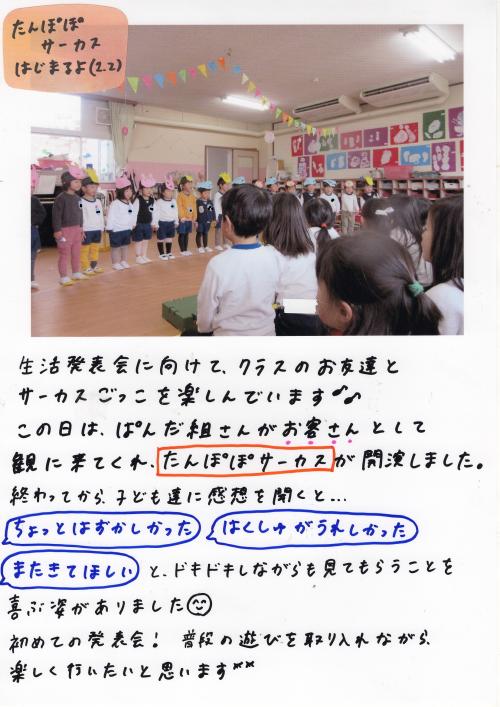 たんぽぽ
サーカス
はじまるよ(2.2)
生活発表会に向けて、クラスのお友達と
サーカスごっこを楽しんでいます♪♪
この日は、ぱんだ組さんがお客さんとして
観に来てくれ、たんぽぽサーカスが開演しました。
終わってから、子ども達に感想を聞くと…
ちょっとはずかしかった はくしゅがうれしかった
またきてほしい と、ドキドキしながらも見てもらうことを
喜ぶ姿がありました☺
初めての発表会! 普段の遊びを取り入れながら、
楽しく行いたいと思います**